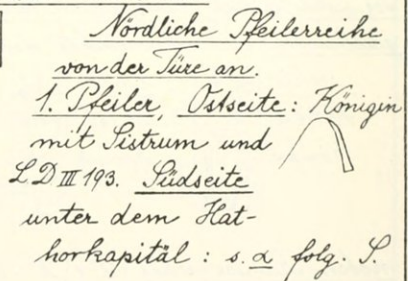 Nördliche Pfeilerreihe
von der Türe an.
1. Pfeiler, Ostseite: Königin
mit Sistrum und
LD III 193. Südseite
unter dem Hat-
horkapitäl: s. α folg. S.